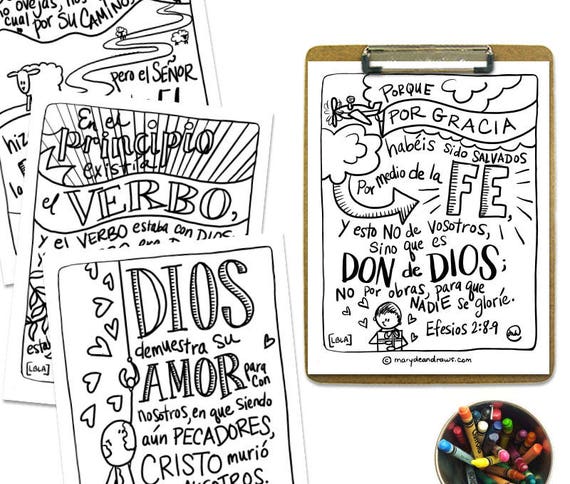 ovejas, nos
cual por SU CAMINO,
pero el SEÑOR
hizo
En el
principio
existía
el VERBO,
y el VERBO estaba con DIOS,
[LBLA]
DIOS
demuestra su
AMOR para
con
nosotros, en que siendo
aún PECADORES,
CRISTO murió
NOSOTROS.
PORQUE
POR GRACIA
habéis sido SALVADOS
Por medio de la
FE,
y esto NO de vosotros,
sino que es
DON de DIOS;
NO por obras, para que
NADIE se gloríe.
Efesios 2:8-9
[LBLA]
© marydeandraws.com